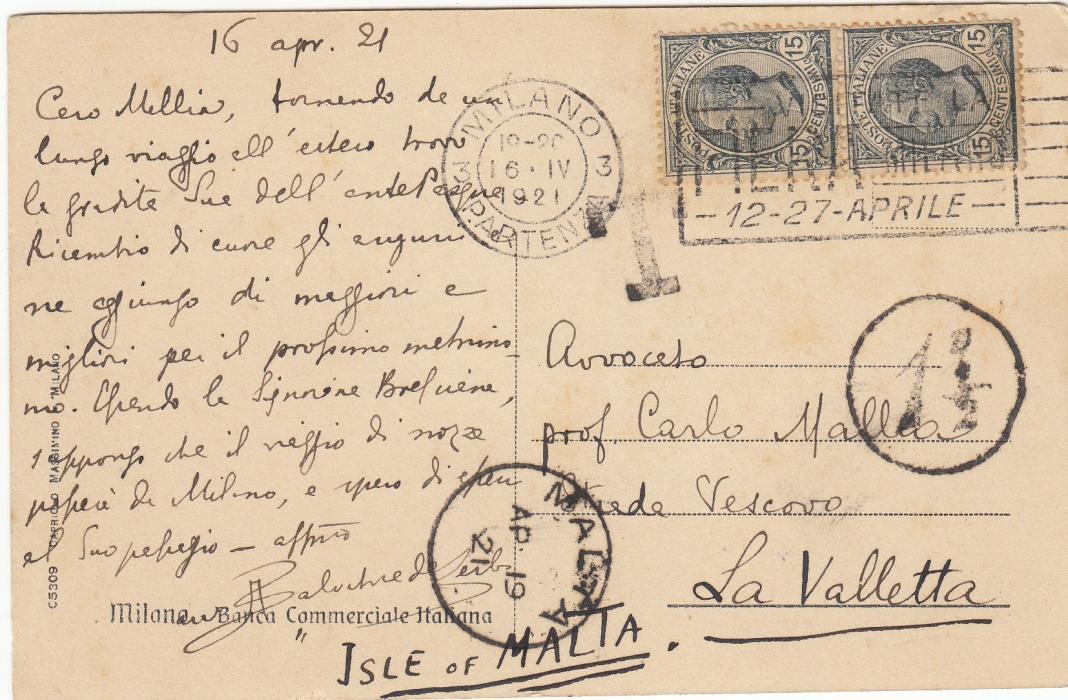 16 apr. 21
Caro Mallia, tornando da un
lungo viaggio all'estero trovo
la gradita Sua dell'antePasqua
Ricambio di cuore gli auguri e
ne aggiungo di maggiori e
migliori per il prossimo matrimo-
nio. Essendo la Signorina
suppongo che il viaggio di nozze
passerà da Milano, e spero di
al Suo passaggio — affmo
Salvatore
Milano Banca Commerciale Italiana
C5309 CAPRIOLO MASSIMINO MILANO
MILANO
3 19-20 3
16·IV
1921
PARTENZA
POSTE ITALIANE 15 CENTESIMI 15
POSTE ITALIANE 15 CENTESIMI 15
FIERA MILANO
-12-27-APRILE-
T
Avvocato
prof. Carlo Mallia
Strada Vescovo
La Valletta
" ISLE OF MALTA.
MALTA
AP 19
21